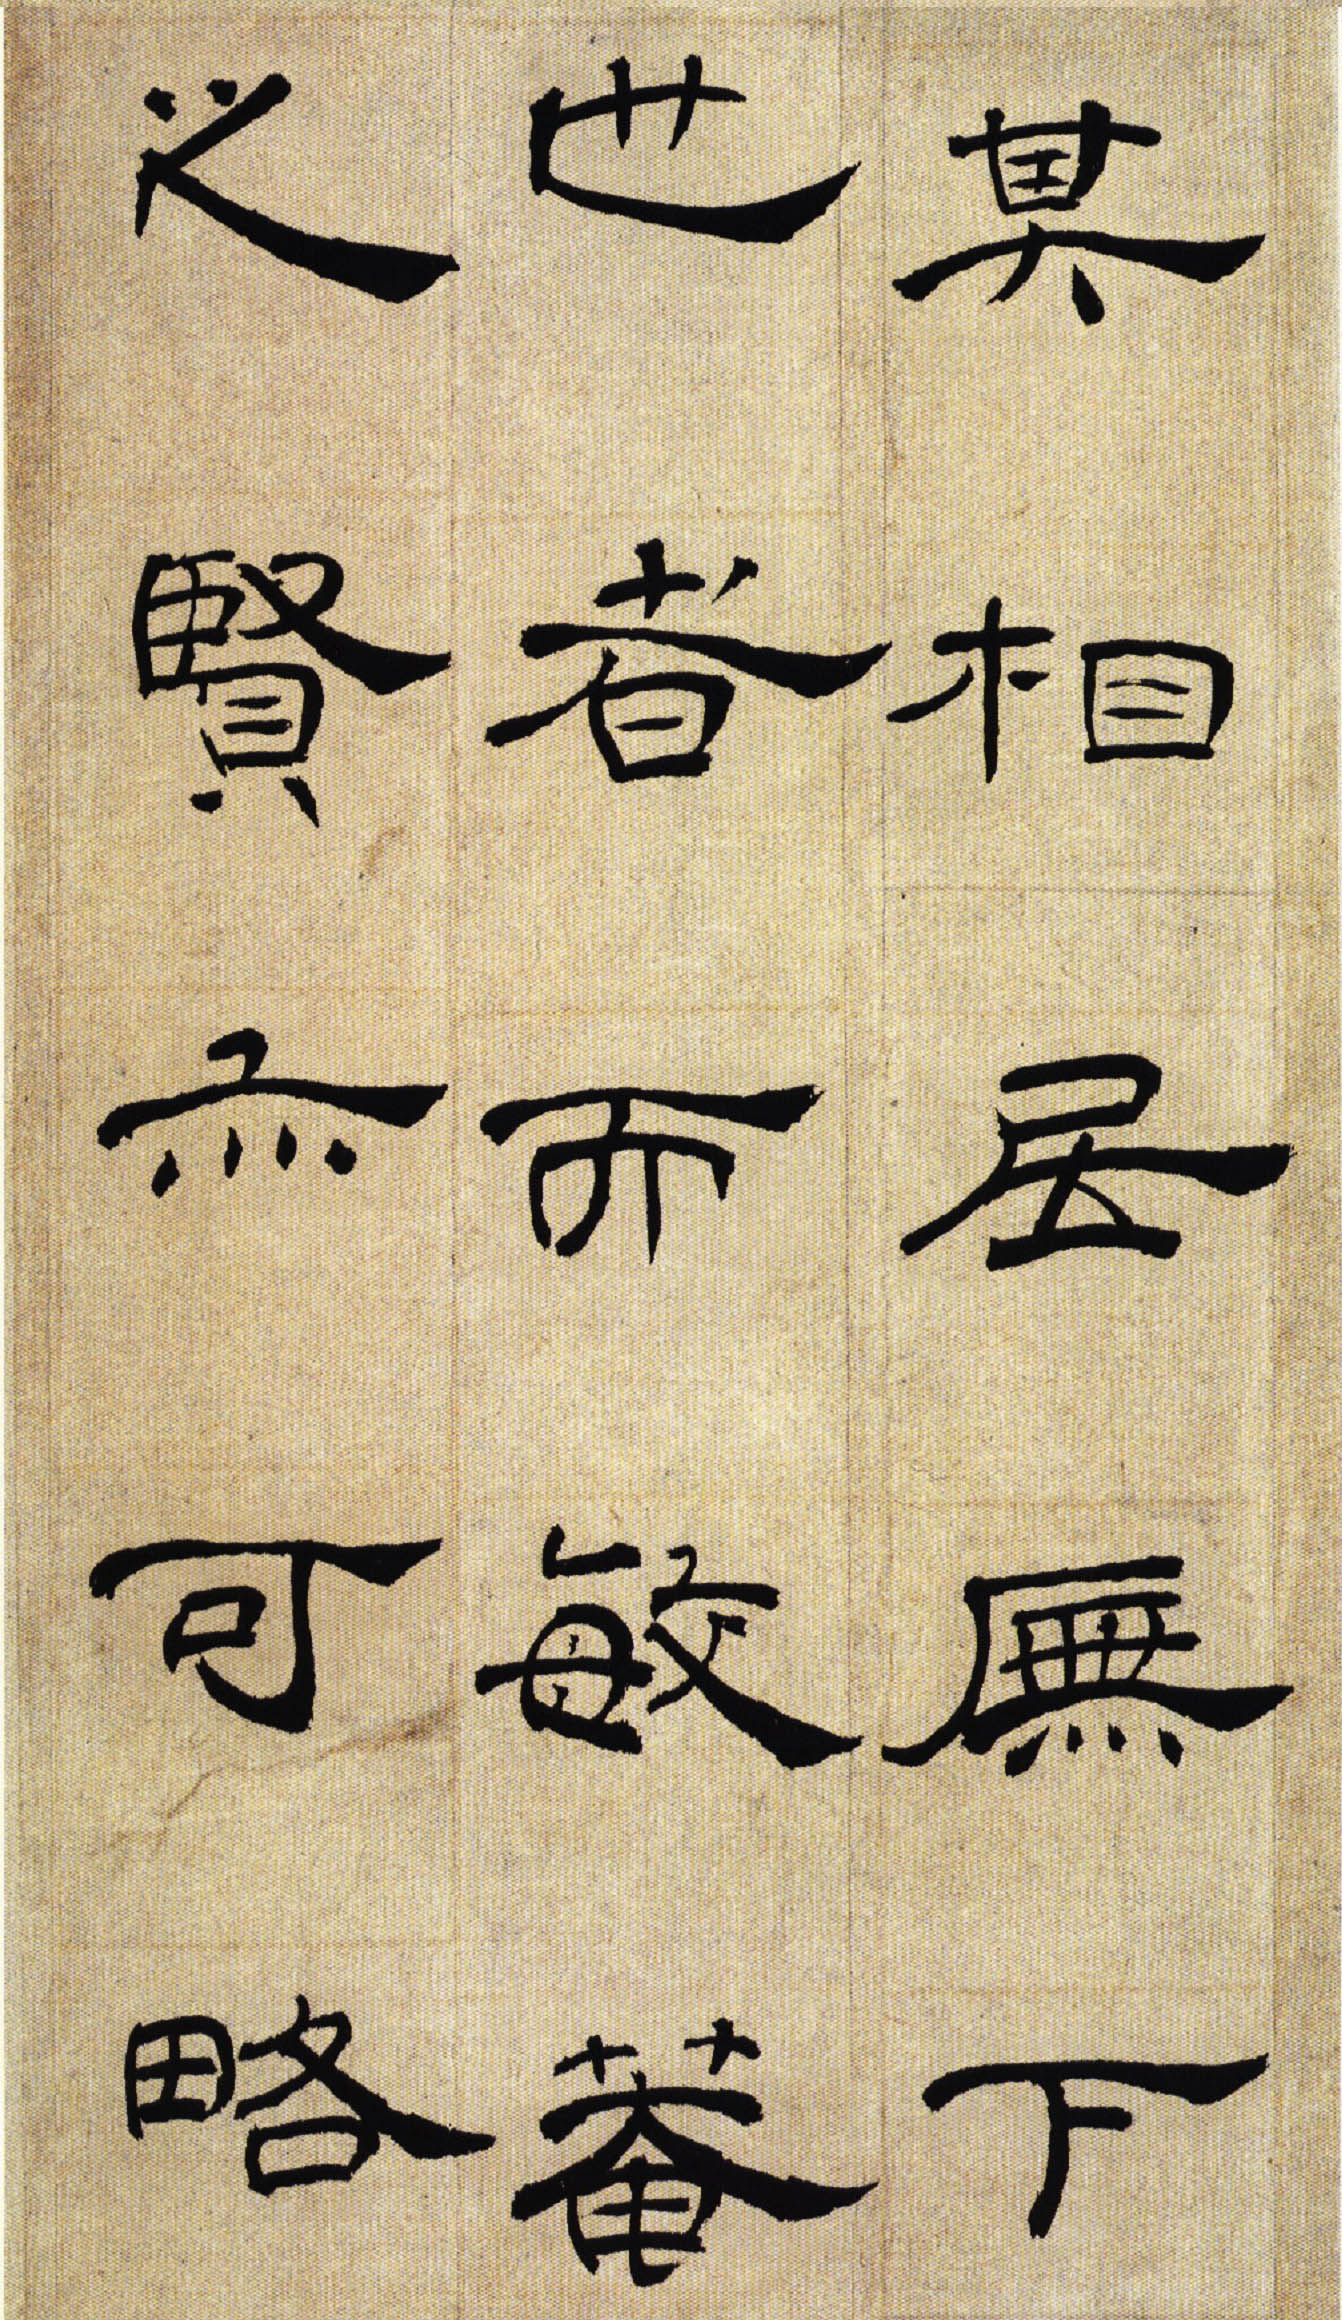 其相居廡下
也者而敏菴
之賢亦可略